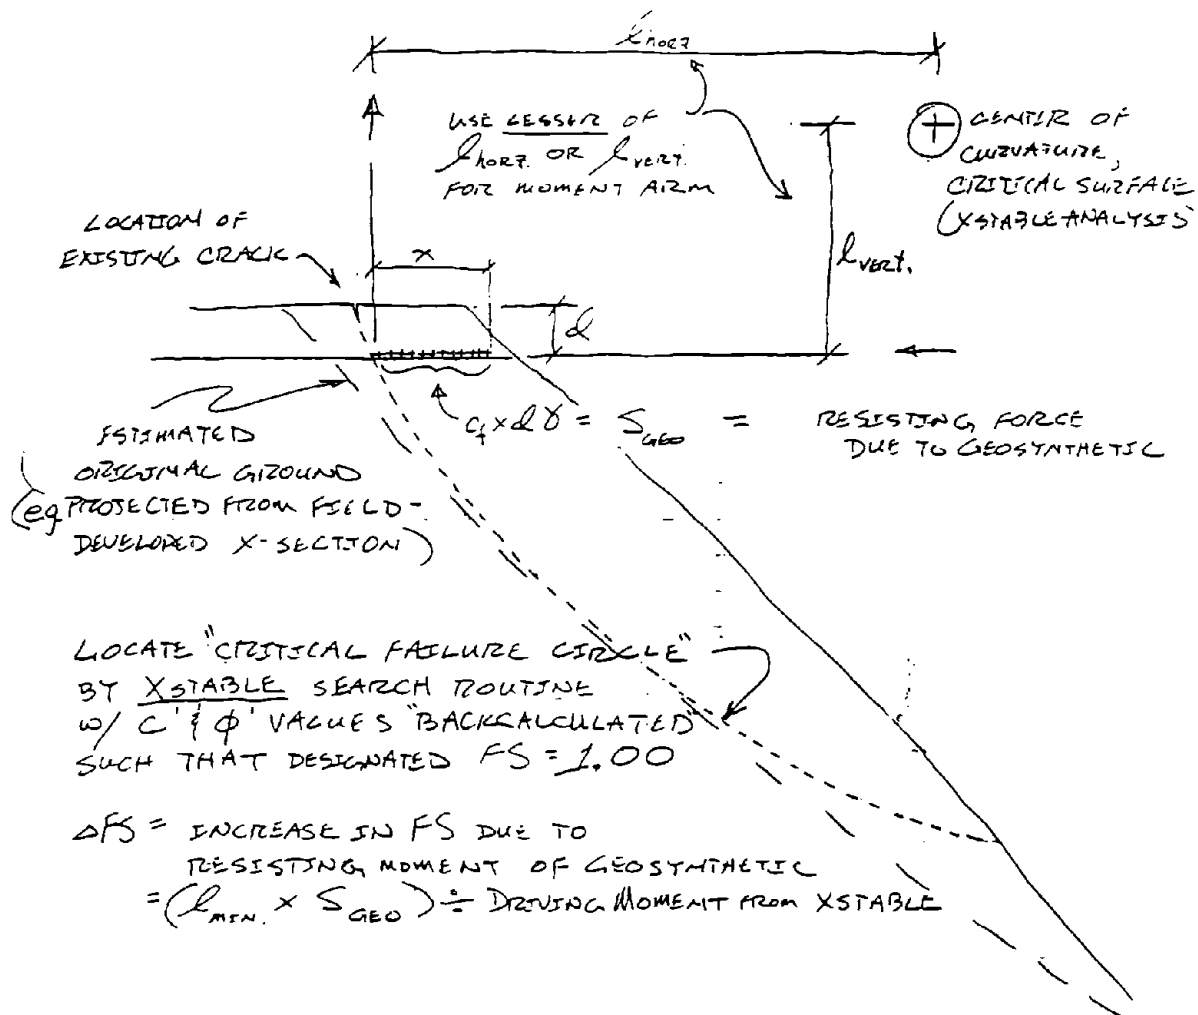 l HORZ.
USE LESSER OF
l HORZ. OR l VERT.
FOR MOMENT ARM
CENTER OF
CURVATURE,
CRITICAL SURFACE
(XSTABLE ANALYSIS)
LOCATION OF
EXISTING CRACK
x
l VERT.
d
ESTIMATED
ORIGINAL GROUND
(eg PROJECTED FROM FIELD-
DEVELOPED X-SECTION)
c_f x d γ = S_GEO = RESISTING FORCE
DUE TO GEOSYNTHETIC
LOCATE "CRITICAL FAILURE CIRCLE"
BY XSTABLE SEARCH ROUTINE
W/ C' & φ' VALUES "BACKCALCULATED"
SUCH THAT DESIGNATED FS = 1.00
ΔFS = INCREASE IN FS DUE TO
RESISTING MOMENT OF GEOSYNTHETIC
= (l MIN. x S_GEO) ÷ DRIVING MOMENT FROM XSTABLE